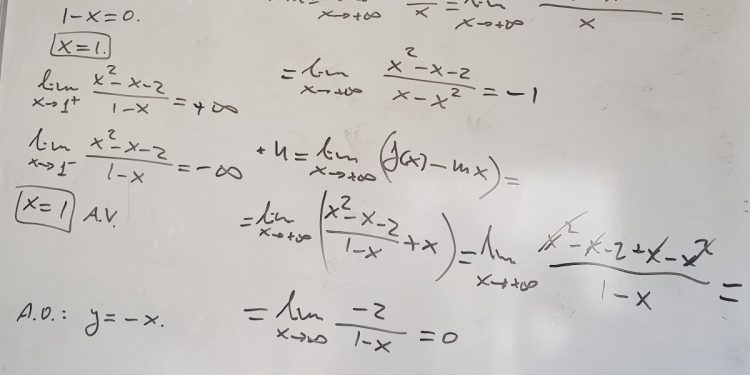 1-x=0.
x=1.
lim x→1⁺ (x²-x-2)/(1-x) = +∞
lim x→1⁻ (x²-x-2)/(1-x) = -∞
x=1 A.V.
A.O.: y=-x.
x→+∞ x = lim x→+∞ x =
= lim x→+∞ (x²-x-2)/(x-x²) = -1
• n = lim x→+∞ (f(x)-mx) =
= lim x→+∞ ((x²-x-2)/(1-x) + x) = lim x→+∞ (x²-x-2+x-x²)/(1-x) =
= lim x→∞ (-2)/(1-x) = 0